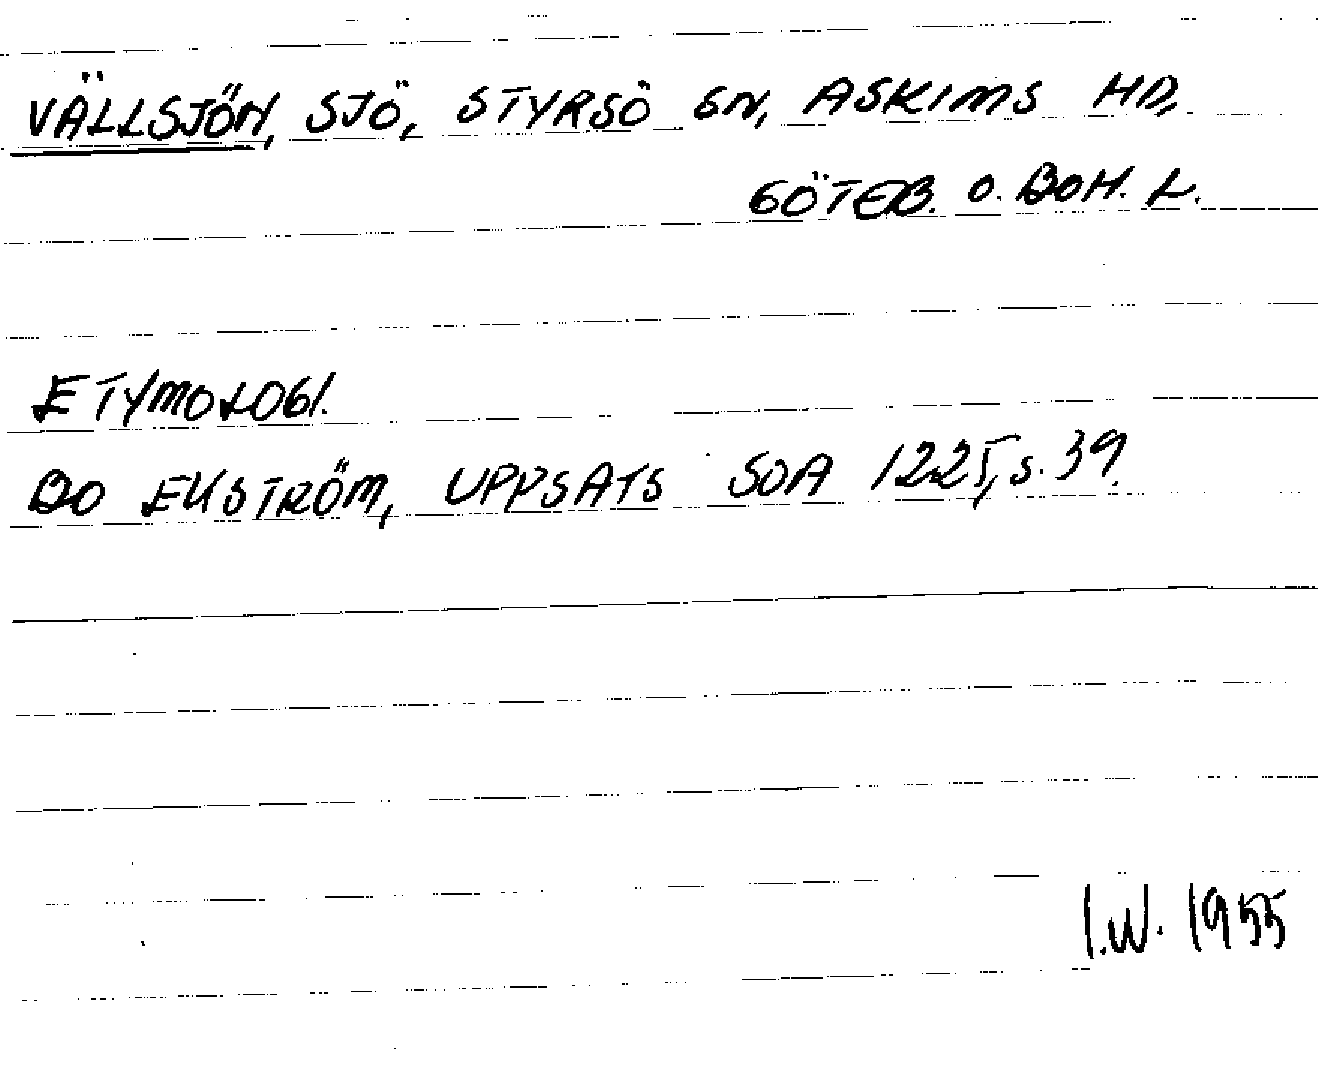 VÄLLSJÖN, SJÖ, STYRSÖ SN, ASKIMS HD,
GÖTEB. O. BOH. L.
ETYMOLOGI.
BO EKSTRÖM, UPPSATS SOA 1225, s. 39.
I.W. 1955